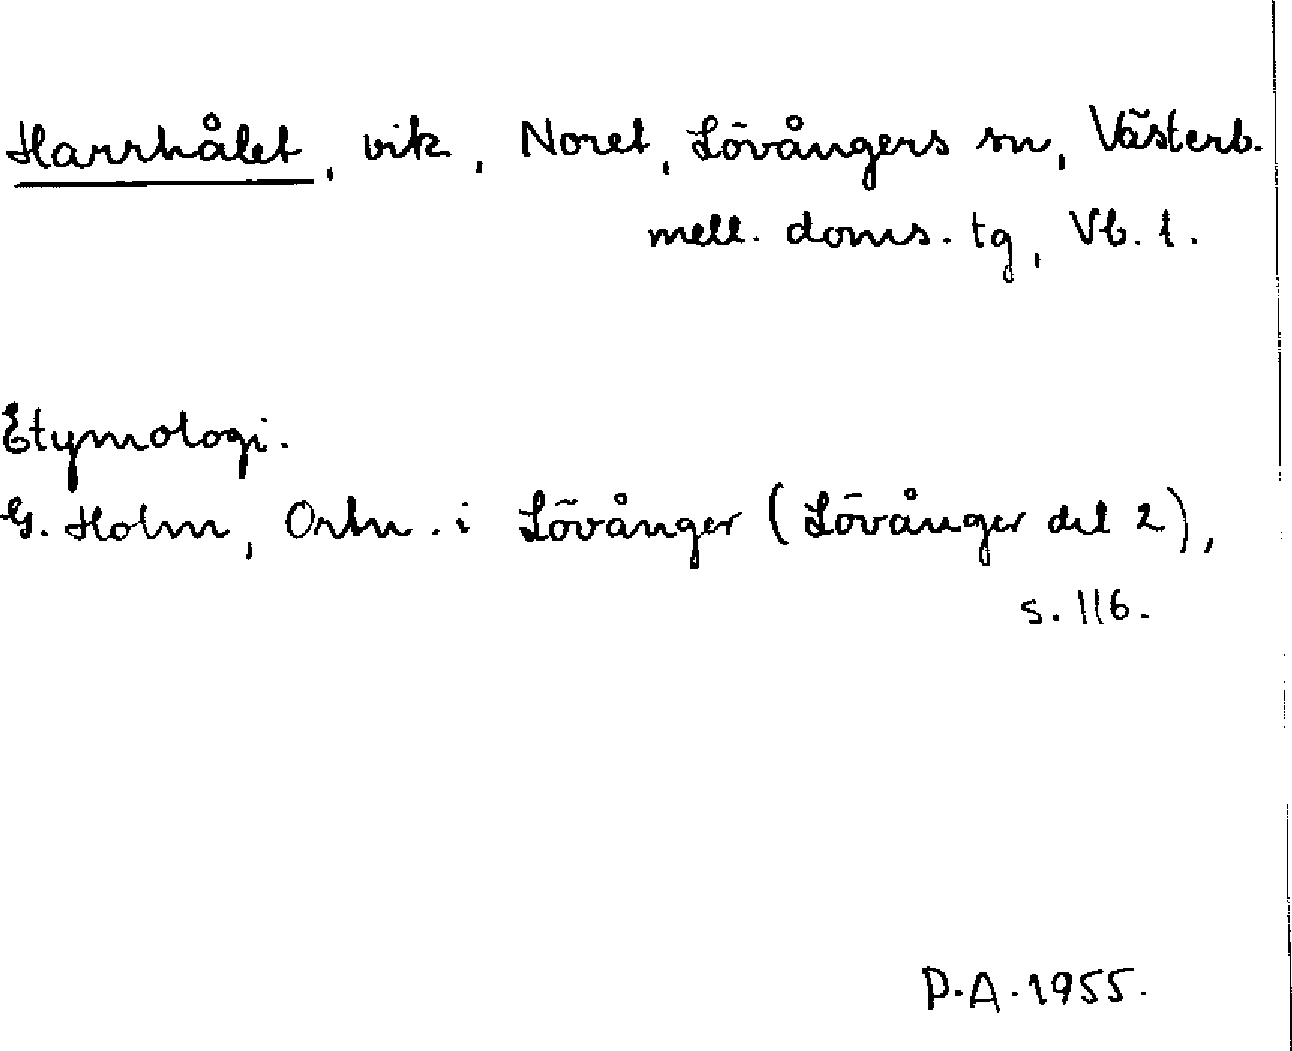 Harrhålet, vik, Noret, Lövångers sn, Västerb.
mell. doms. tg, Vb. 1.
Etymologi.
G. Holm, Ortn. i Lövånger (Lövånger del 2),
s. 116.
P.A. 1955.